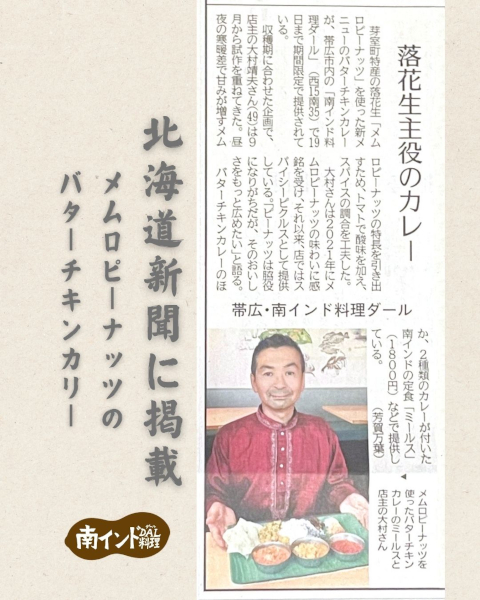 落花生主役のカレー
芽室町特産の落花生「メム
ロピーナッツ」を使った新メ
ニューのバターチキンカレー
が、帯広市内の「南インド料
理ダール」(西15南35)で19
日まで期間限定で提供されて
いる。
収穫期に合わせた企画で、
店主の大村靖夫さん(49)は９
月から試作を重ねてきた。昼
夜の寒暖差で甘みが増すメム
ロピーナッツの特長を引き出
すため、トマトで酸味を加え、
スパイスの調合を工夫した。
大村さんは２０２１年にメ
ムロピーナッツの味わいに感
銘を受け、それ以来、店ではス
パイシーピクルスとして提供
している。「ピーナッツは脇役
になりがちだが、そのおいし
さをもっと広めたい」と語る。
バターチキンカレーのほ
か、２種類のカレーが付いた
南インドの定食「ミールス」
(１８００円)などで提供し
ている。 (芳賀万葉)
帯広・南インド料理ダール
メムロピーナッツを
使ったバターチキン
カレーのミールスと
店主の大村さん
北海道新聞に掲載
メムロピーナッツの
バターチキンカリー
南インドDAL料理